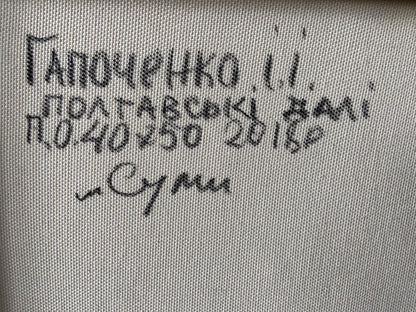 Гапоченко І.І.
Полтавські далі
П.О. 40х50 2018р
м Суми